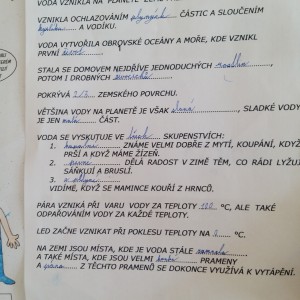 VODA VZNIKLA NA PLANETĚ
VZNIKLA OCHLAZOVÁNÍM plynných ČÁSTIC A SLOUČENÍM
kyslíku A VODÍKU.
VODA VYTVOŘILA OBROVSKÉ OCEÁNY A MOŘE, KDE VZNIKL
PRVNÍ život
STALA SE DOMOVEM NEJDŘÍVE JEDNODUCHÝCH rostlin,
POTOM I DROBNÝCH živočichů
POKRÝVÁ 2/3 ZEMSKÉHO POVRCHU.
VĚTŠINA VODY NA PLANETĚ JE VŠAK slaná, SLADKÉ VODY
JE JEN malá ČÁST.
VODA SE VYSKYTUJE VE třech SKUPENSTVÍCH:
1. kapalné ZNÁME VELMI DOBŘE Z MYTÍ, KOUPÁNÍ, KDYŽ
PRŠÍ A KDYŽ MÁME ŽÍZEŇ.
2. pevné DĚLÁ RADOST V ZIMĚ TĚM, CO RÁDI LYŽUJ
SÁŇKUJÍ A BRUSLÍ.
3. plynné
VIDÍMĚ, KDYŽ SE MAMINCE KOUŘÍ Z HRNCŮ.
PÁRA VZNIKÁ PŘI VARU VODY ZA TEPLOTY 100 °C, ALE TAKÉ
ODPAŘOVÁNÍM VODY ZA KAŽDÉ TEPLOTY.
LED ZAČNE VZNIKAT PŘI POKLESU TEPLOTY NA 0 °C.
NA ZEMI JSOU MÍSTA, KDE JE VODA STÁLE zmrzlá
A TAKÉ MÍSTA, KDE JSOU VELMI horké PRAMENY
A pára Z TĚCHTO PRAMENŮ SE DOKONCE VYUŽÍVÁ K VYTÁPĚNÍ.